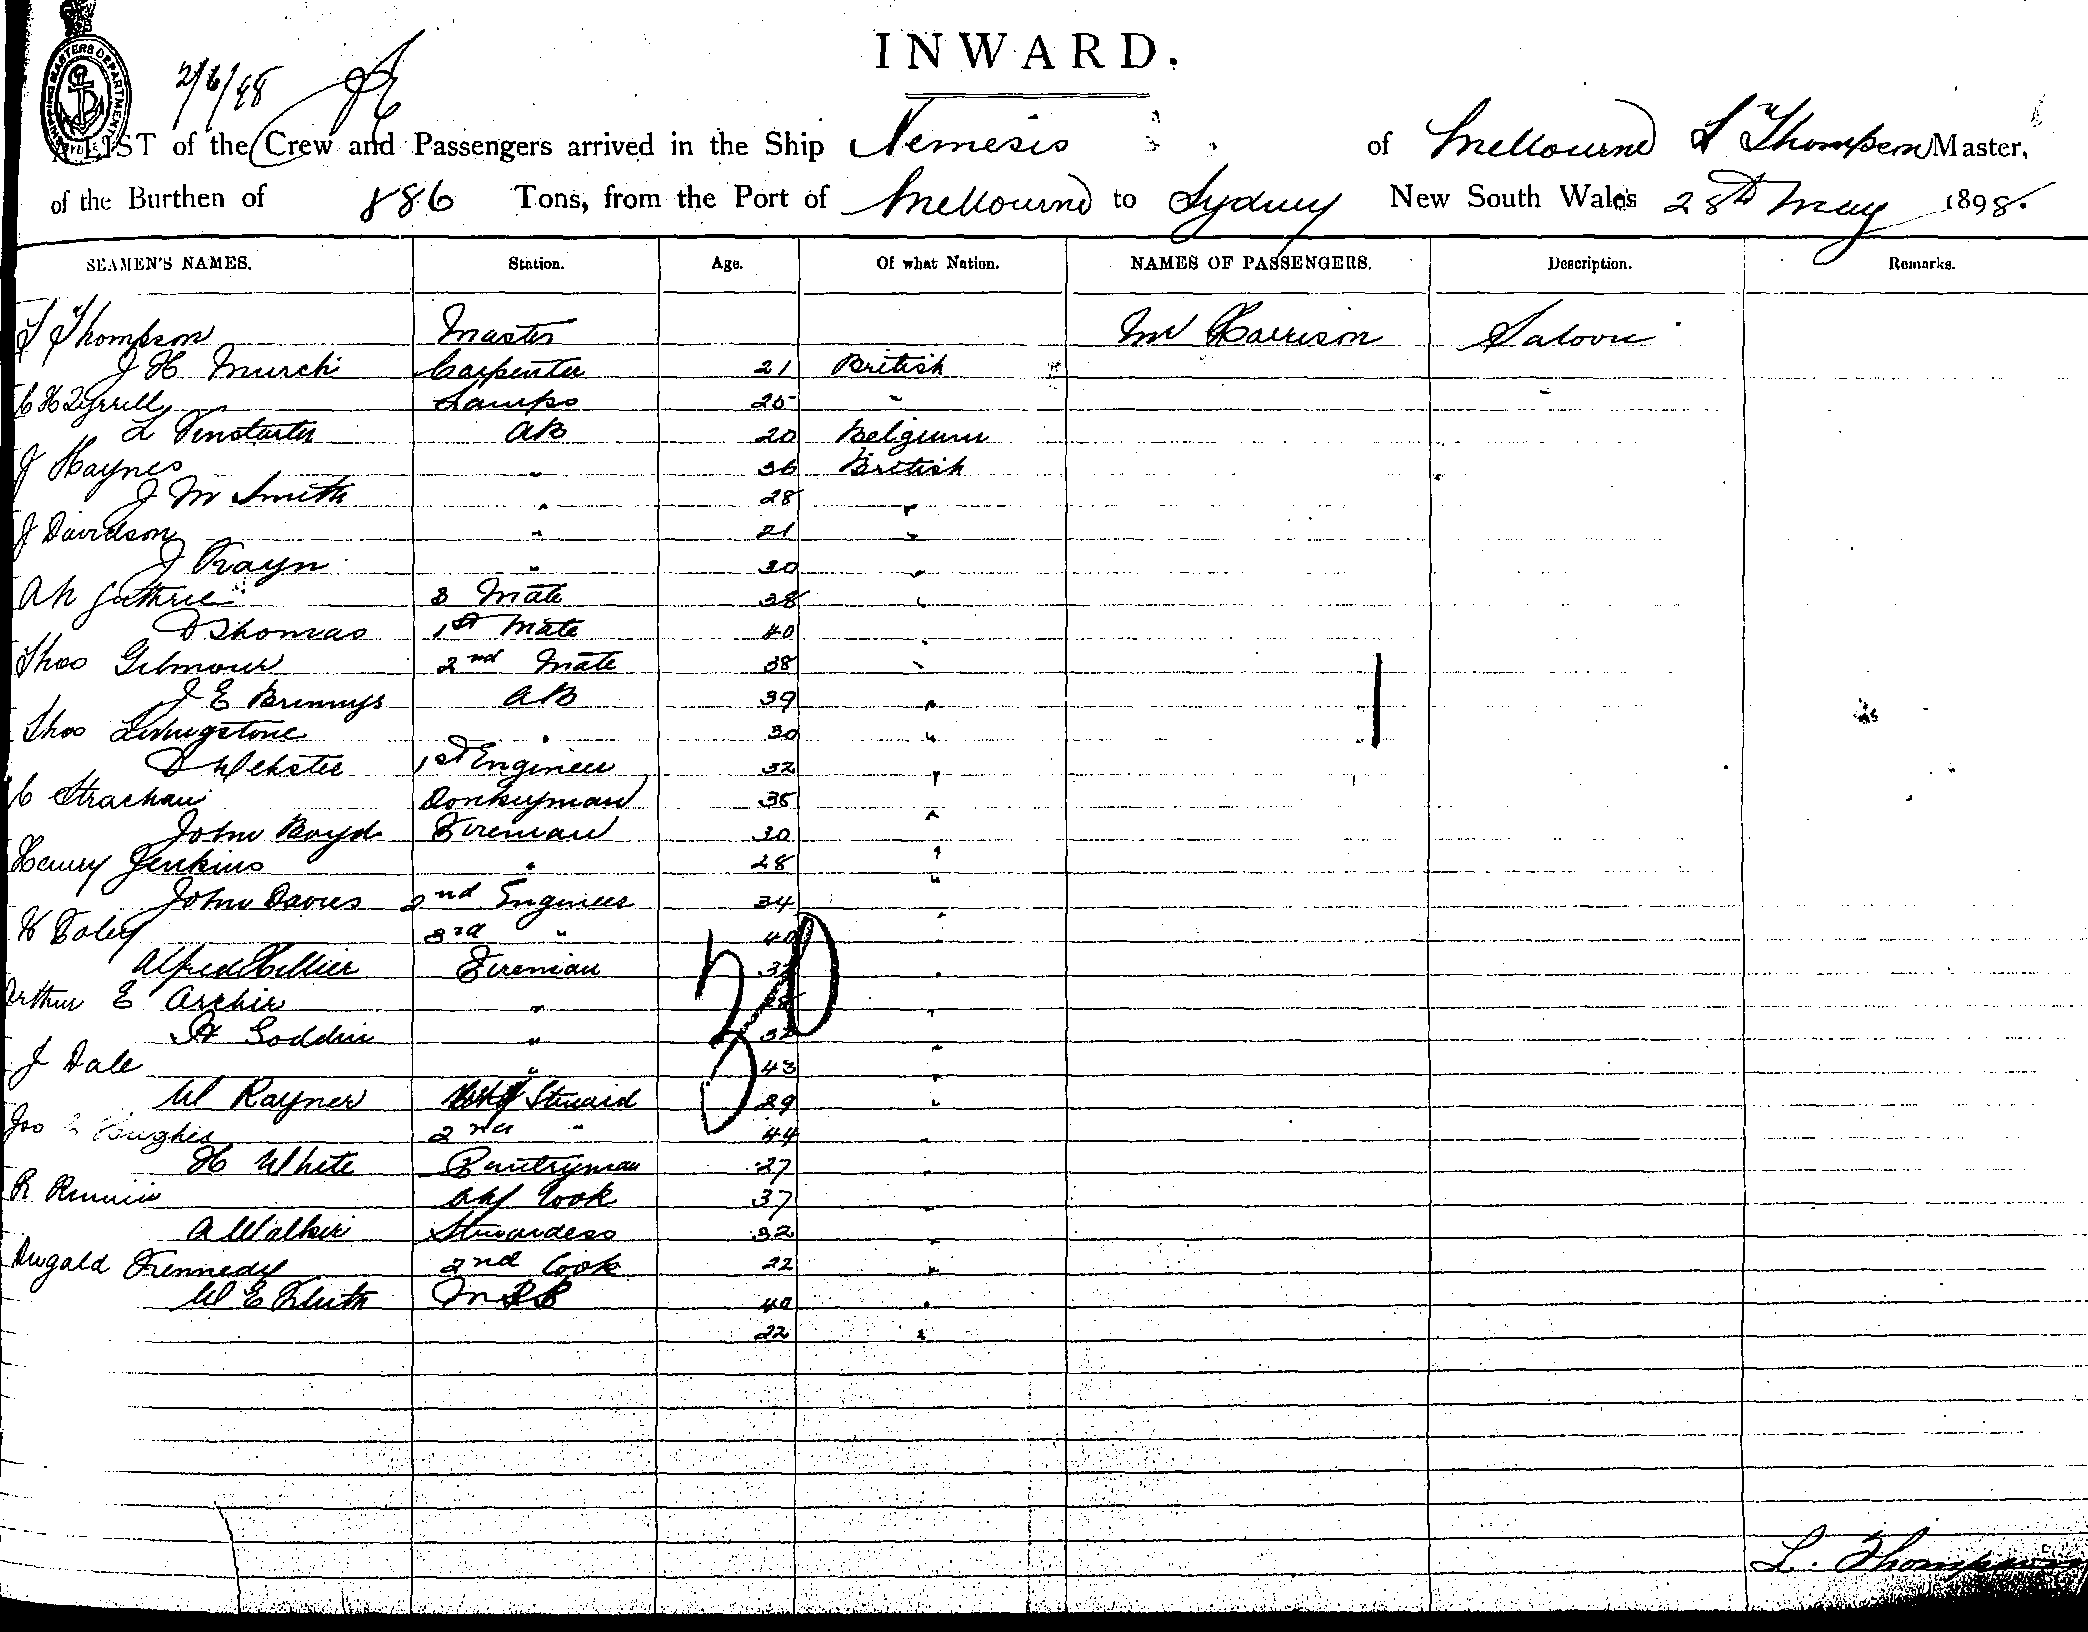 INWARD.
2/6/98
A LIST of the Crew and Passengers arrived in the Ship Nemesis of Melbourne L Thompson Master,
of the Burthen of 886 Tons, from the Port of Melbourne to Sydney New South Wales 28th May 1898.
SEAMEN'S NAMES. Station. Age. Of what Nation. NAMES OF PASSENGERS. Description. Remarks.
L Thompson Master Mr Harrison Saloon
J H Murch Carpenter 21 British
C H Tyrrell Lamps 25 "
L AB 20 Belgium
J Haynes " 36 British
J M Smith " 28 "
J Davidson " 21 "
J Trayn " 30 "
A N Guthrie 3 Mate 38 "
D Thomas 1st Mate 40 "
Thos Gilmour 2nd Mate 38 "
J E AB 39 "
Thos Livingstone " 30 "
D Webster 1st Engineer 32 "
C Strachan Donkeyman 35 "
John Boyd Fireman 30 "
Henry Jenkins " 28 "
John Davies 2nd Engineer 34 "
H Foley 3rd " 40 "
Alfred Hillier Fireman "
Arthur E Archer " "
H " 32 "
J Dale " 43 "
W Rayner Steward 29 "
Jos Hughes 2nd " 44 "
H White Pantryman 27 "
R Rennie Cook 37 "
A Walker Stewardess 32 "
Dugald Kennedy 2nd Cook 22 "
W E 40 "
22 "
30
L. Thompson